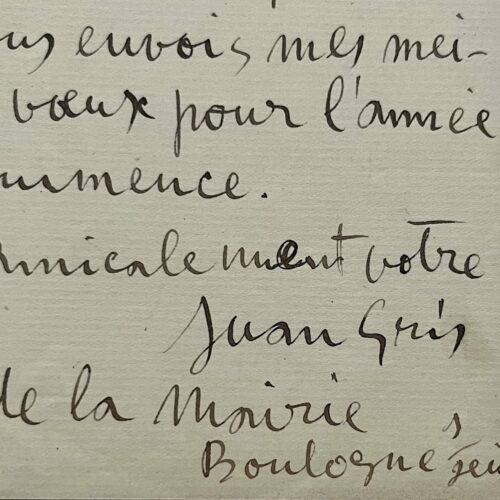 ous envois mes mei-
vœux pour l'année
ommence.
amicalement votre
Juan Gris
de la Mairie
Boulogne s/Sei